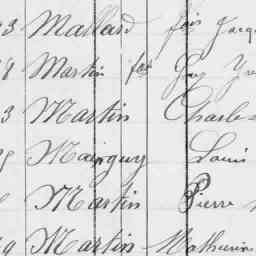 3 Mallard fois Jacq
8 Martin fox Guy Yv
3 Martin Charles
Mainguy Louis
Martin Pierre
9 Martin Mathurin